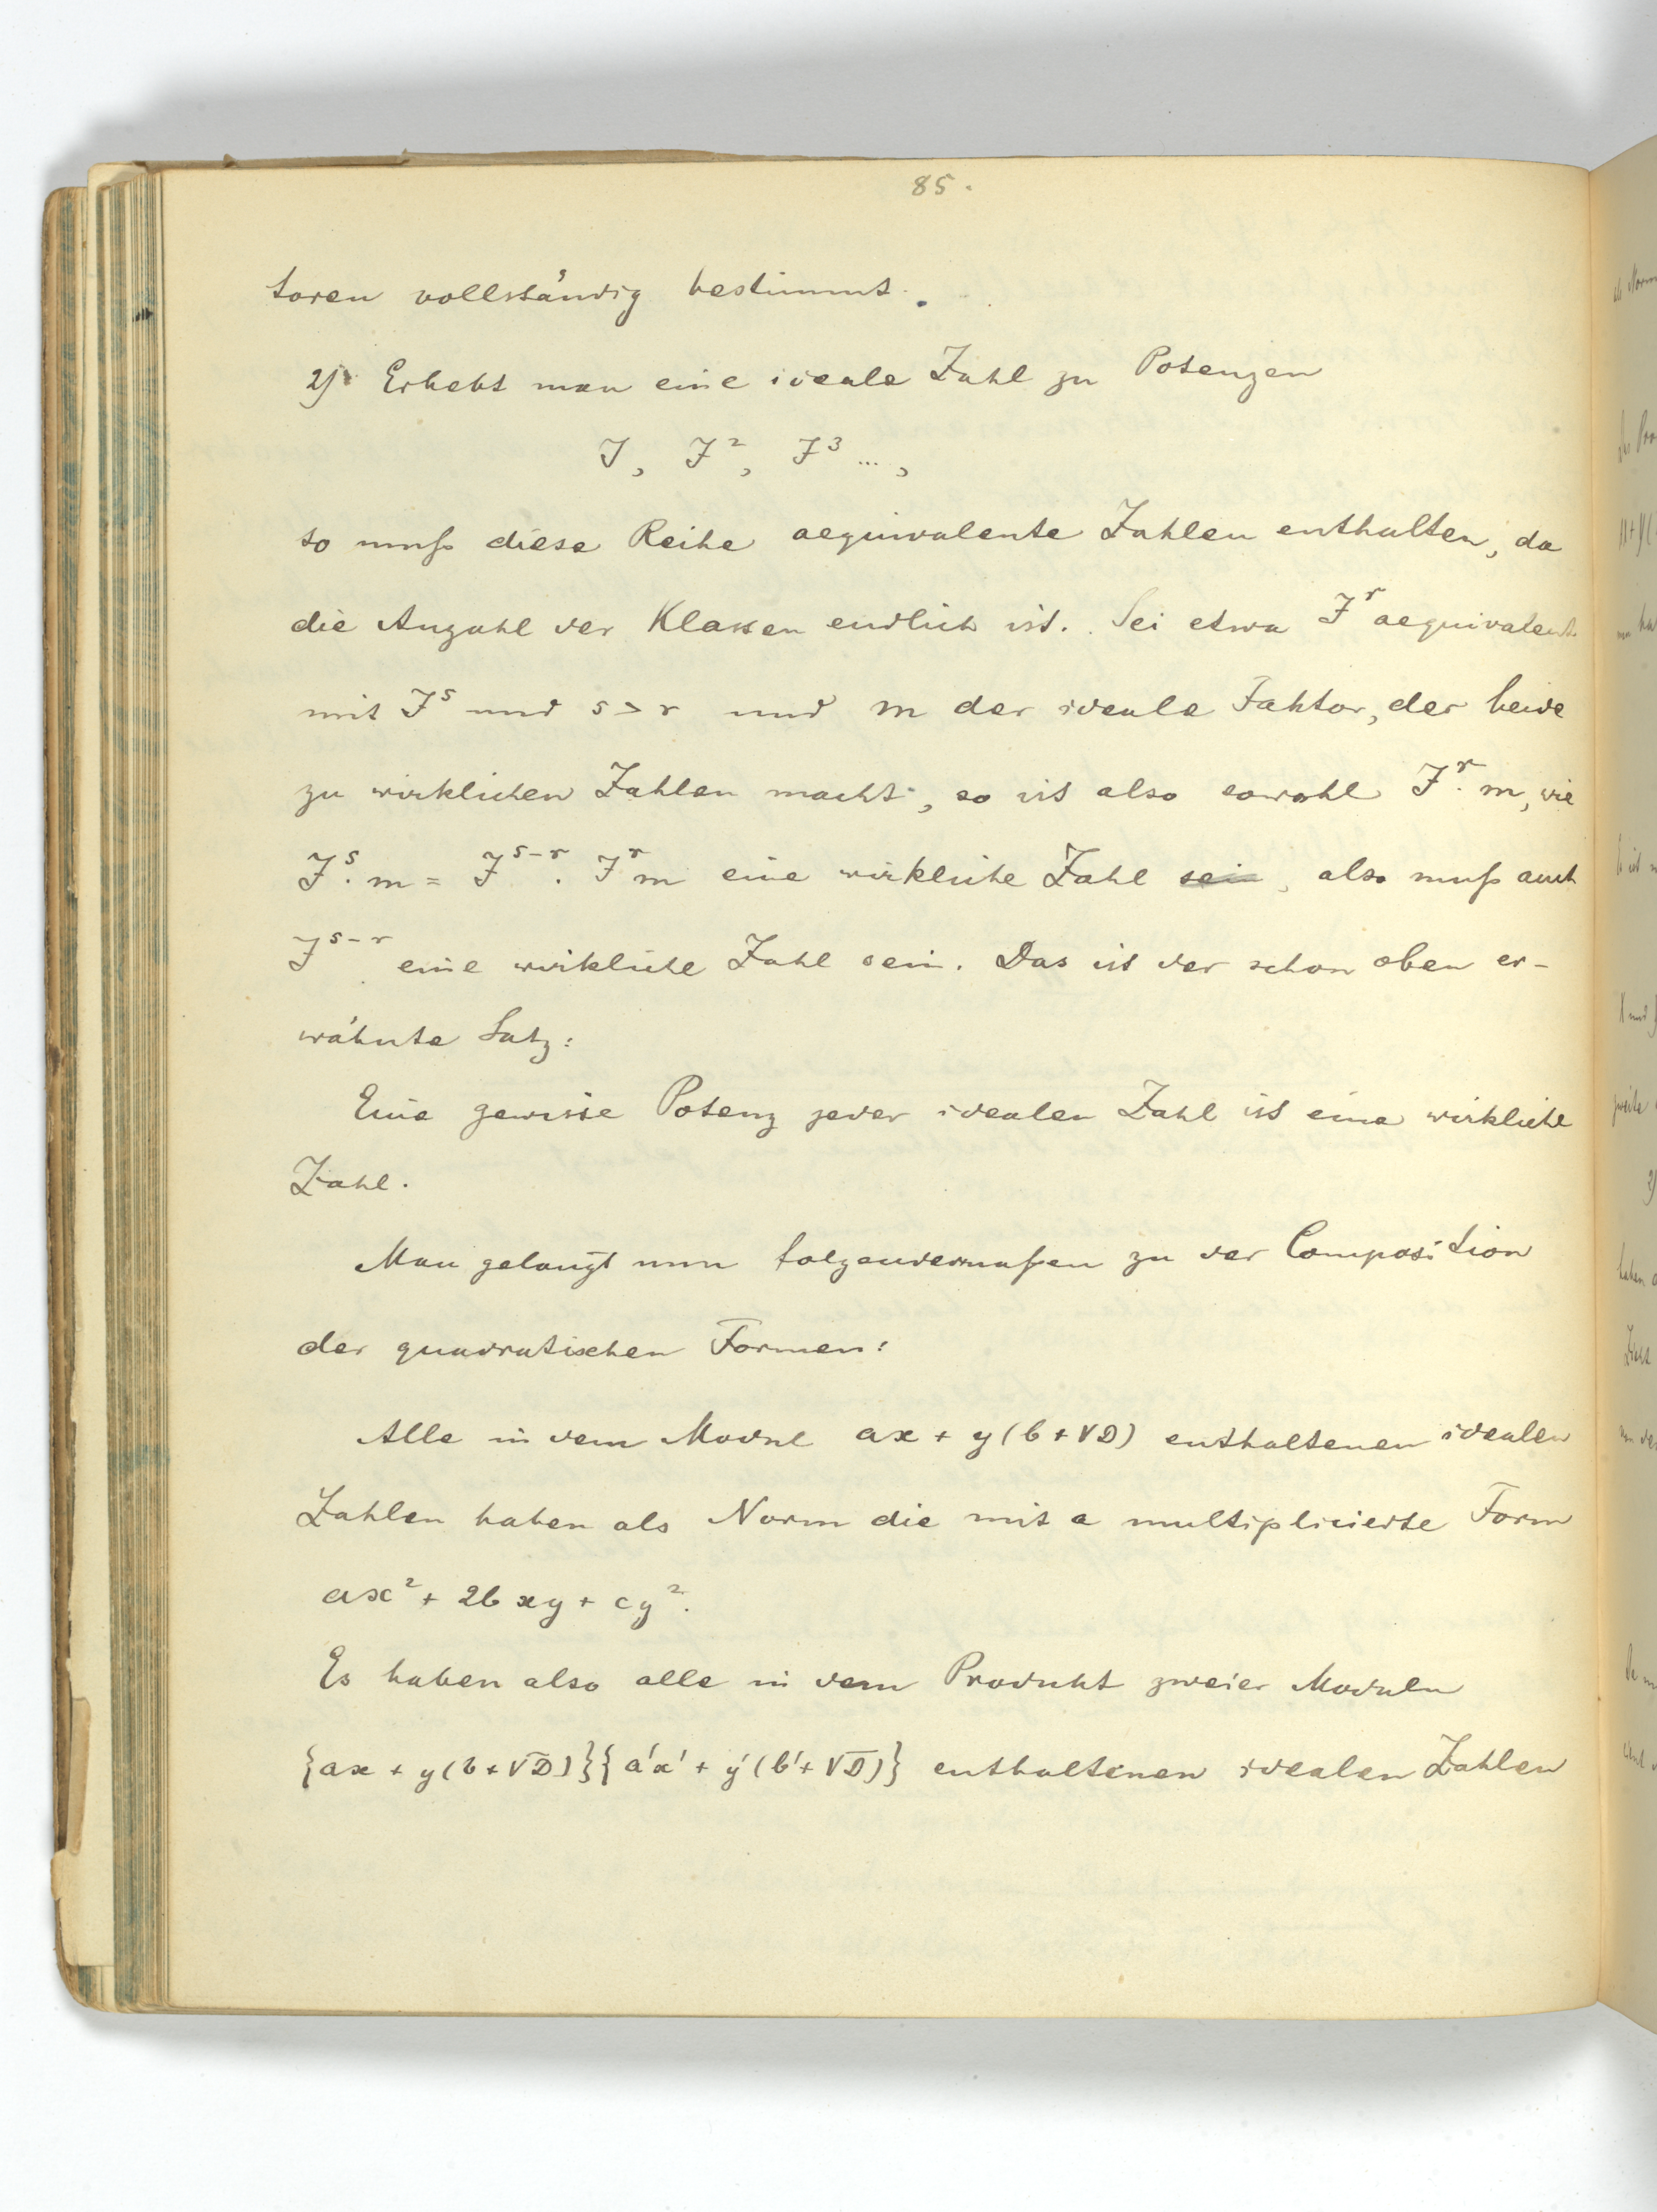 85.
toren vollständig bestimmt.
2) Erhebt man eine ideale Zahl zu Potenzen
J, J², J³ ...,
so muß diese Reihe aequivalente Zahlen enthalten, da
die Anzahl der Klassen endlich ist. Sei etwa J^r aequivalent
mit J^s und s > r und m der ideale Faktor, der beide
zu wirklichen Zahlen macht, so ist also sowohl J^r · m, wie
J^s · m = J^{s-r} · J^r m eine wirkliche Zahl ~~sein~~, also muß auch
J^{s-r} eine wirkliche Zahl sein. Das ist der schon oben er-
wähnte Satz:
Eine gewisse Potenz jeder idealen Zahl ist eine wirkliche
Zahl.
Man gelangt nun folgendermaßen zu der Composition
der quadratischen Formen:
Alle in dem Modul ax + y(b + √D) enthaltenen idealen
Zahlen haben als Norm die mit a multiplicierte Form
ax² + 2bxy + cy².
Es haben also alle in dem Produkt zweier Moduln
{ax + y(b + √D)}{a'x' + y'(b' + √D)} enthaltenen idealen Zahlen